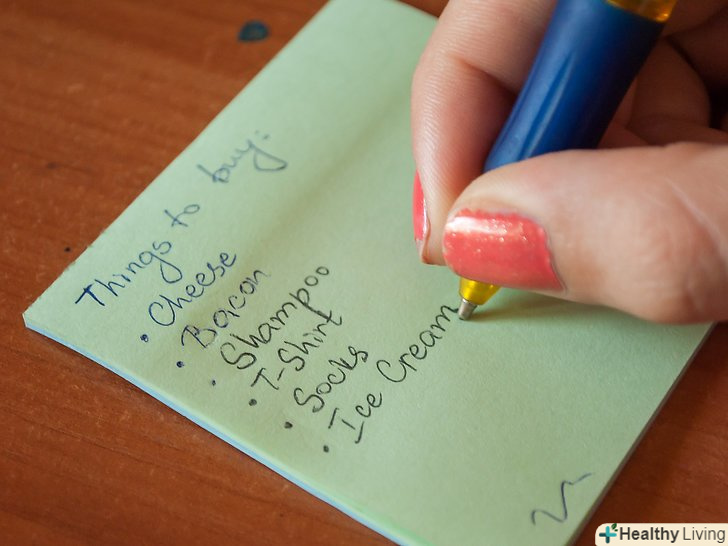 Things to buy:
• Cheese
• Bacon
• Shampoo
• T-Shirt
• Socks
• Ice Cream
Healthy Living